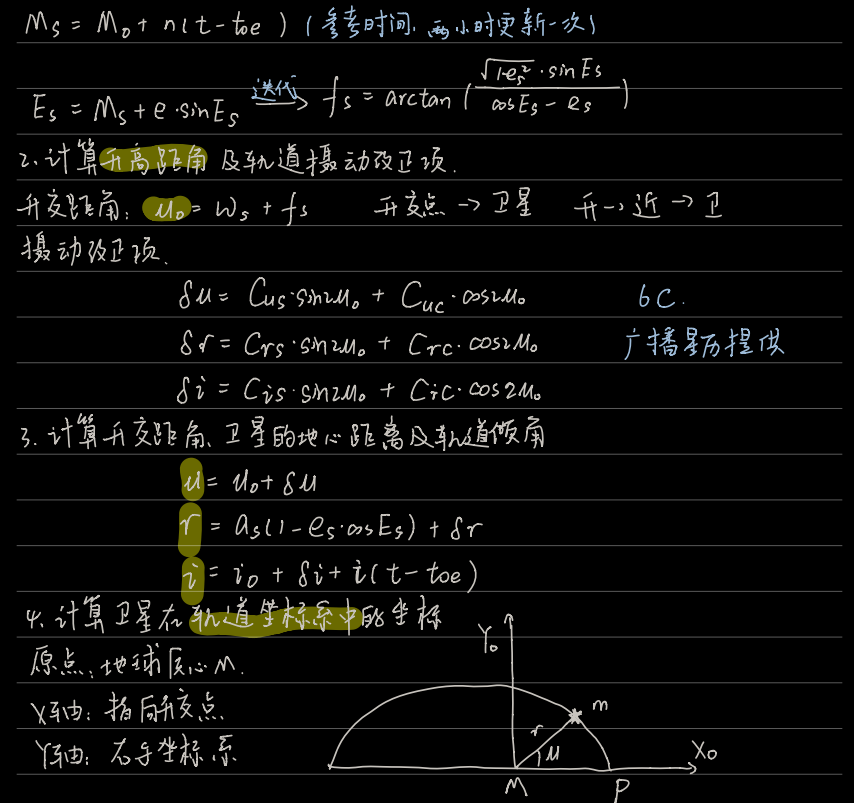 Ms = M₀ + n(t - toe) (参考时间, 两小时更新一次)
Es = Ms + e·sinEs 迭代→ fs = arctan(√(1-es²)·sinEs / (cosEs - es))
2. 计算升高距角及轨道摄动改正项.
升交距角: u₀ = ωs + fs 升交点 → 卫星 升→近→卫
摄动改正项.
δu = Cus·sin2u₀ + Cuc·cos2u₀ 6C.
δr = Crs·sin2u₀ + Crc·cos2u₀ 广播星历提供
δi = Cis·sin2u₀ + Cic·cos2u₀
3. 计算升交距角、卫星的地心距离及轨道倾角
u = u₀ + δu
r = as(1 - es·cosEs) + δr
i = i₀ + δi + i(t - toe)
4. 计算卫星在轨道坐标系中的坐标
原点: 地球质心M.
X轴: 指向升交点
Y轴: 右手坐标系
Y₀
m
r
u
X₀
M
P